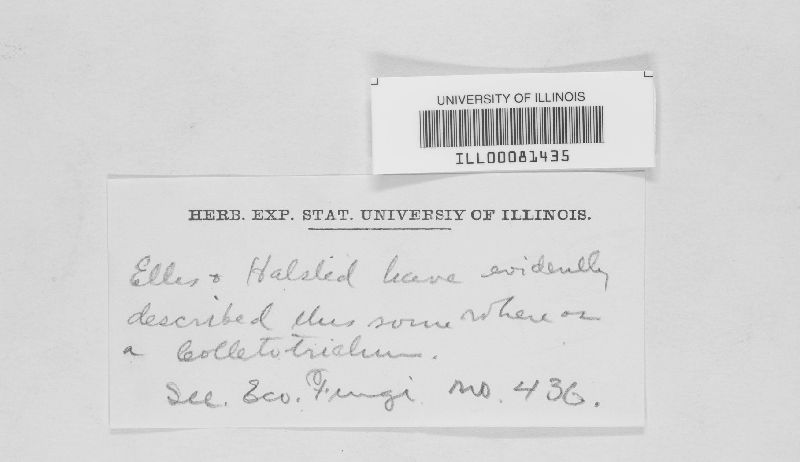 UNIVERSITY OF ILLINOIS
ILL00081435
HERB. EXP. STAT. UNIVERSIY OF ILLINOIS.
Ellis & Halsted have evidently
described this somewhere as
a Colletotrichum.
See. Eco. Fungi no. 436.